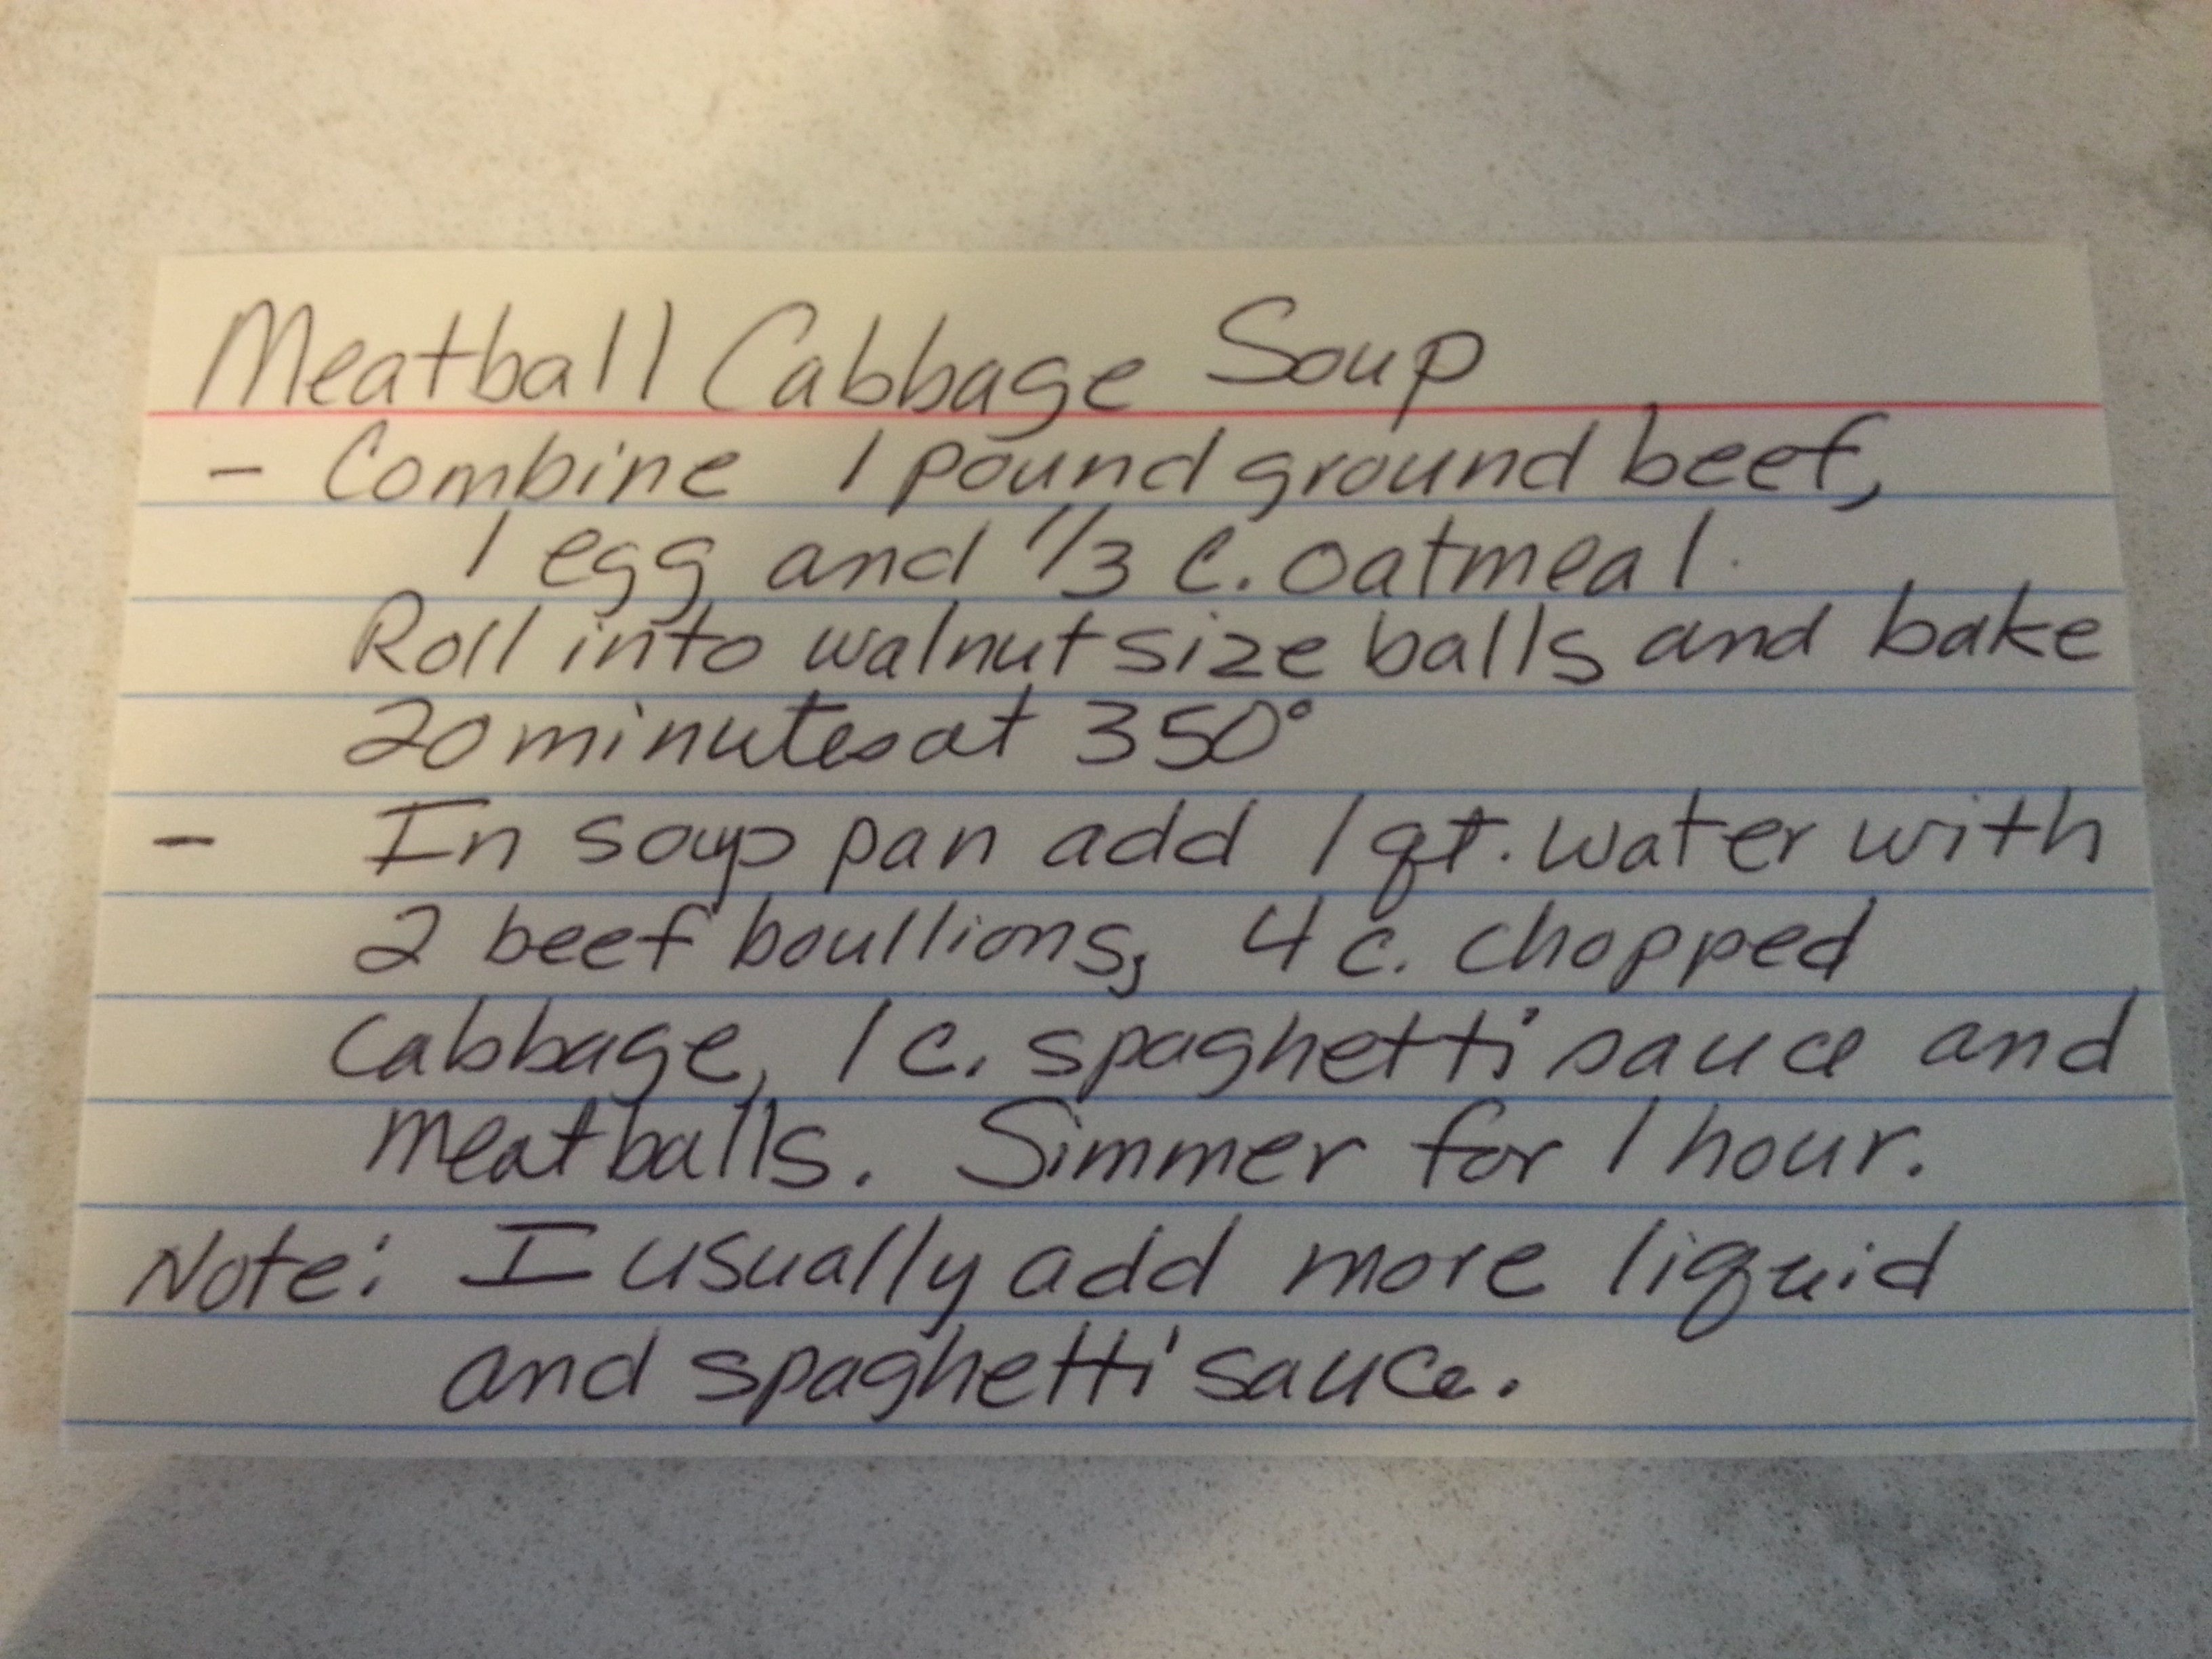 Meatball Cabbage Soup
- Combine 1 pound ground beef,
1 egg and 1/3 c. oatmeal.
Roll into walnut size balls and bake
20 minutes at 350°
- In soup pan add 1 qt. water with
2 beef boullions, 4 c. chopped
cabbage, 1 c. spaghetti sauce and
meatballs. Simmer for 1 hour.
Note: I usually add more liquid
and spaghetti sauce.